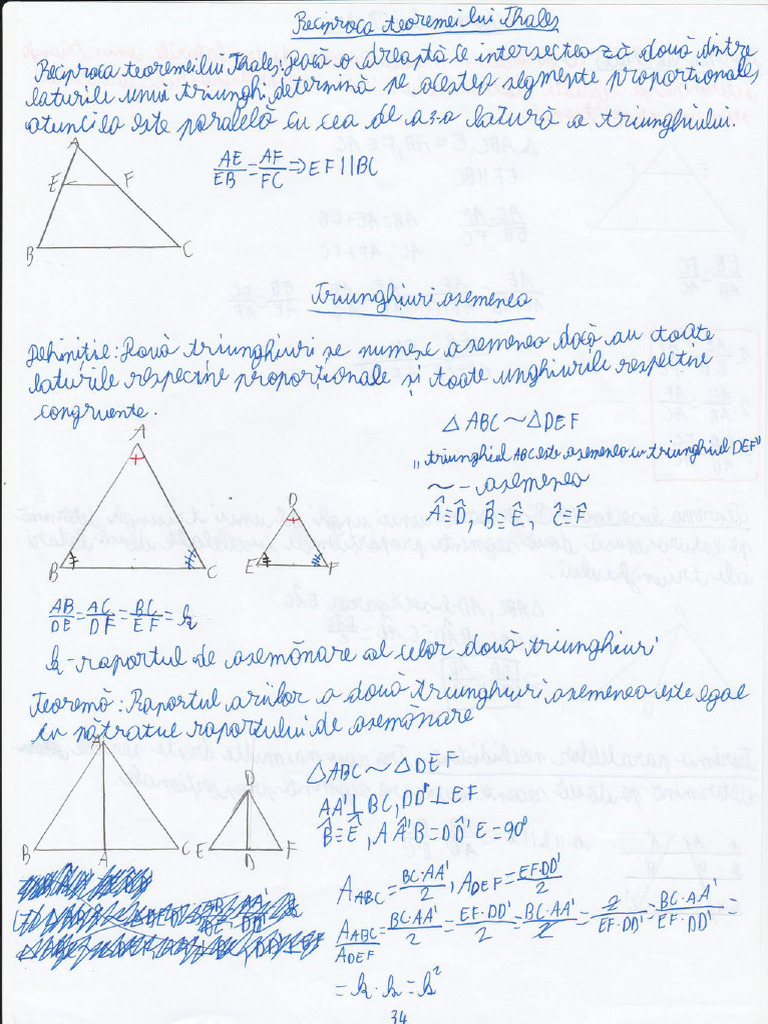 Reciproca teoremei lui Thales
Reciproca teoremei lui Thales: Dacă o dreaptă ce intersectea ză două dintre
laturile unui triunghi, determină pe acestea segmente proporționale,
atunci ea este paralelă cu cea de a 3-a latură a triunghiului.
A
E F
B C
AE/EB = AF/FC => EF || BC
Triunghiuri asemenea
Definiție: Două triunghiuri se numesc asemenea dacă au toate
laturile respectiv proporționale și toate unghiurile respectiv
congruente.
A
B C
D
E F
△ ABC ~ △ DEF
„triunghiul ABC este asemenea cu triunghiul DEF"
~ - asemenea
Â≡D̂, B̂≡Ê, Ĉ≡F̂
AB/DE = AC/DF = BC/EF = k
k - raportul de asemănare al celor două triunghiuri
Teoremă: Raportul ariilor a două triunghiuri asemenea este egal
cu pătratul raportului de asemănare
A
B A C
D
E D F
△ABC ~ △DEF
AA' ⊥ BC, DD' ⊥ EF
B̂≡Ê, AÂ'B = DD̂'E = 90°
A ABC = BC·AA'/2, A DEF = EF·DD'/2
A ABC/A DEF = BC·AA'/2 = EF·DD'/2 = BC·AA'/2 = 2/EF·DD' = BC·AA'/EF·DD' =
= k · k = k²
34